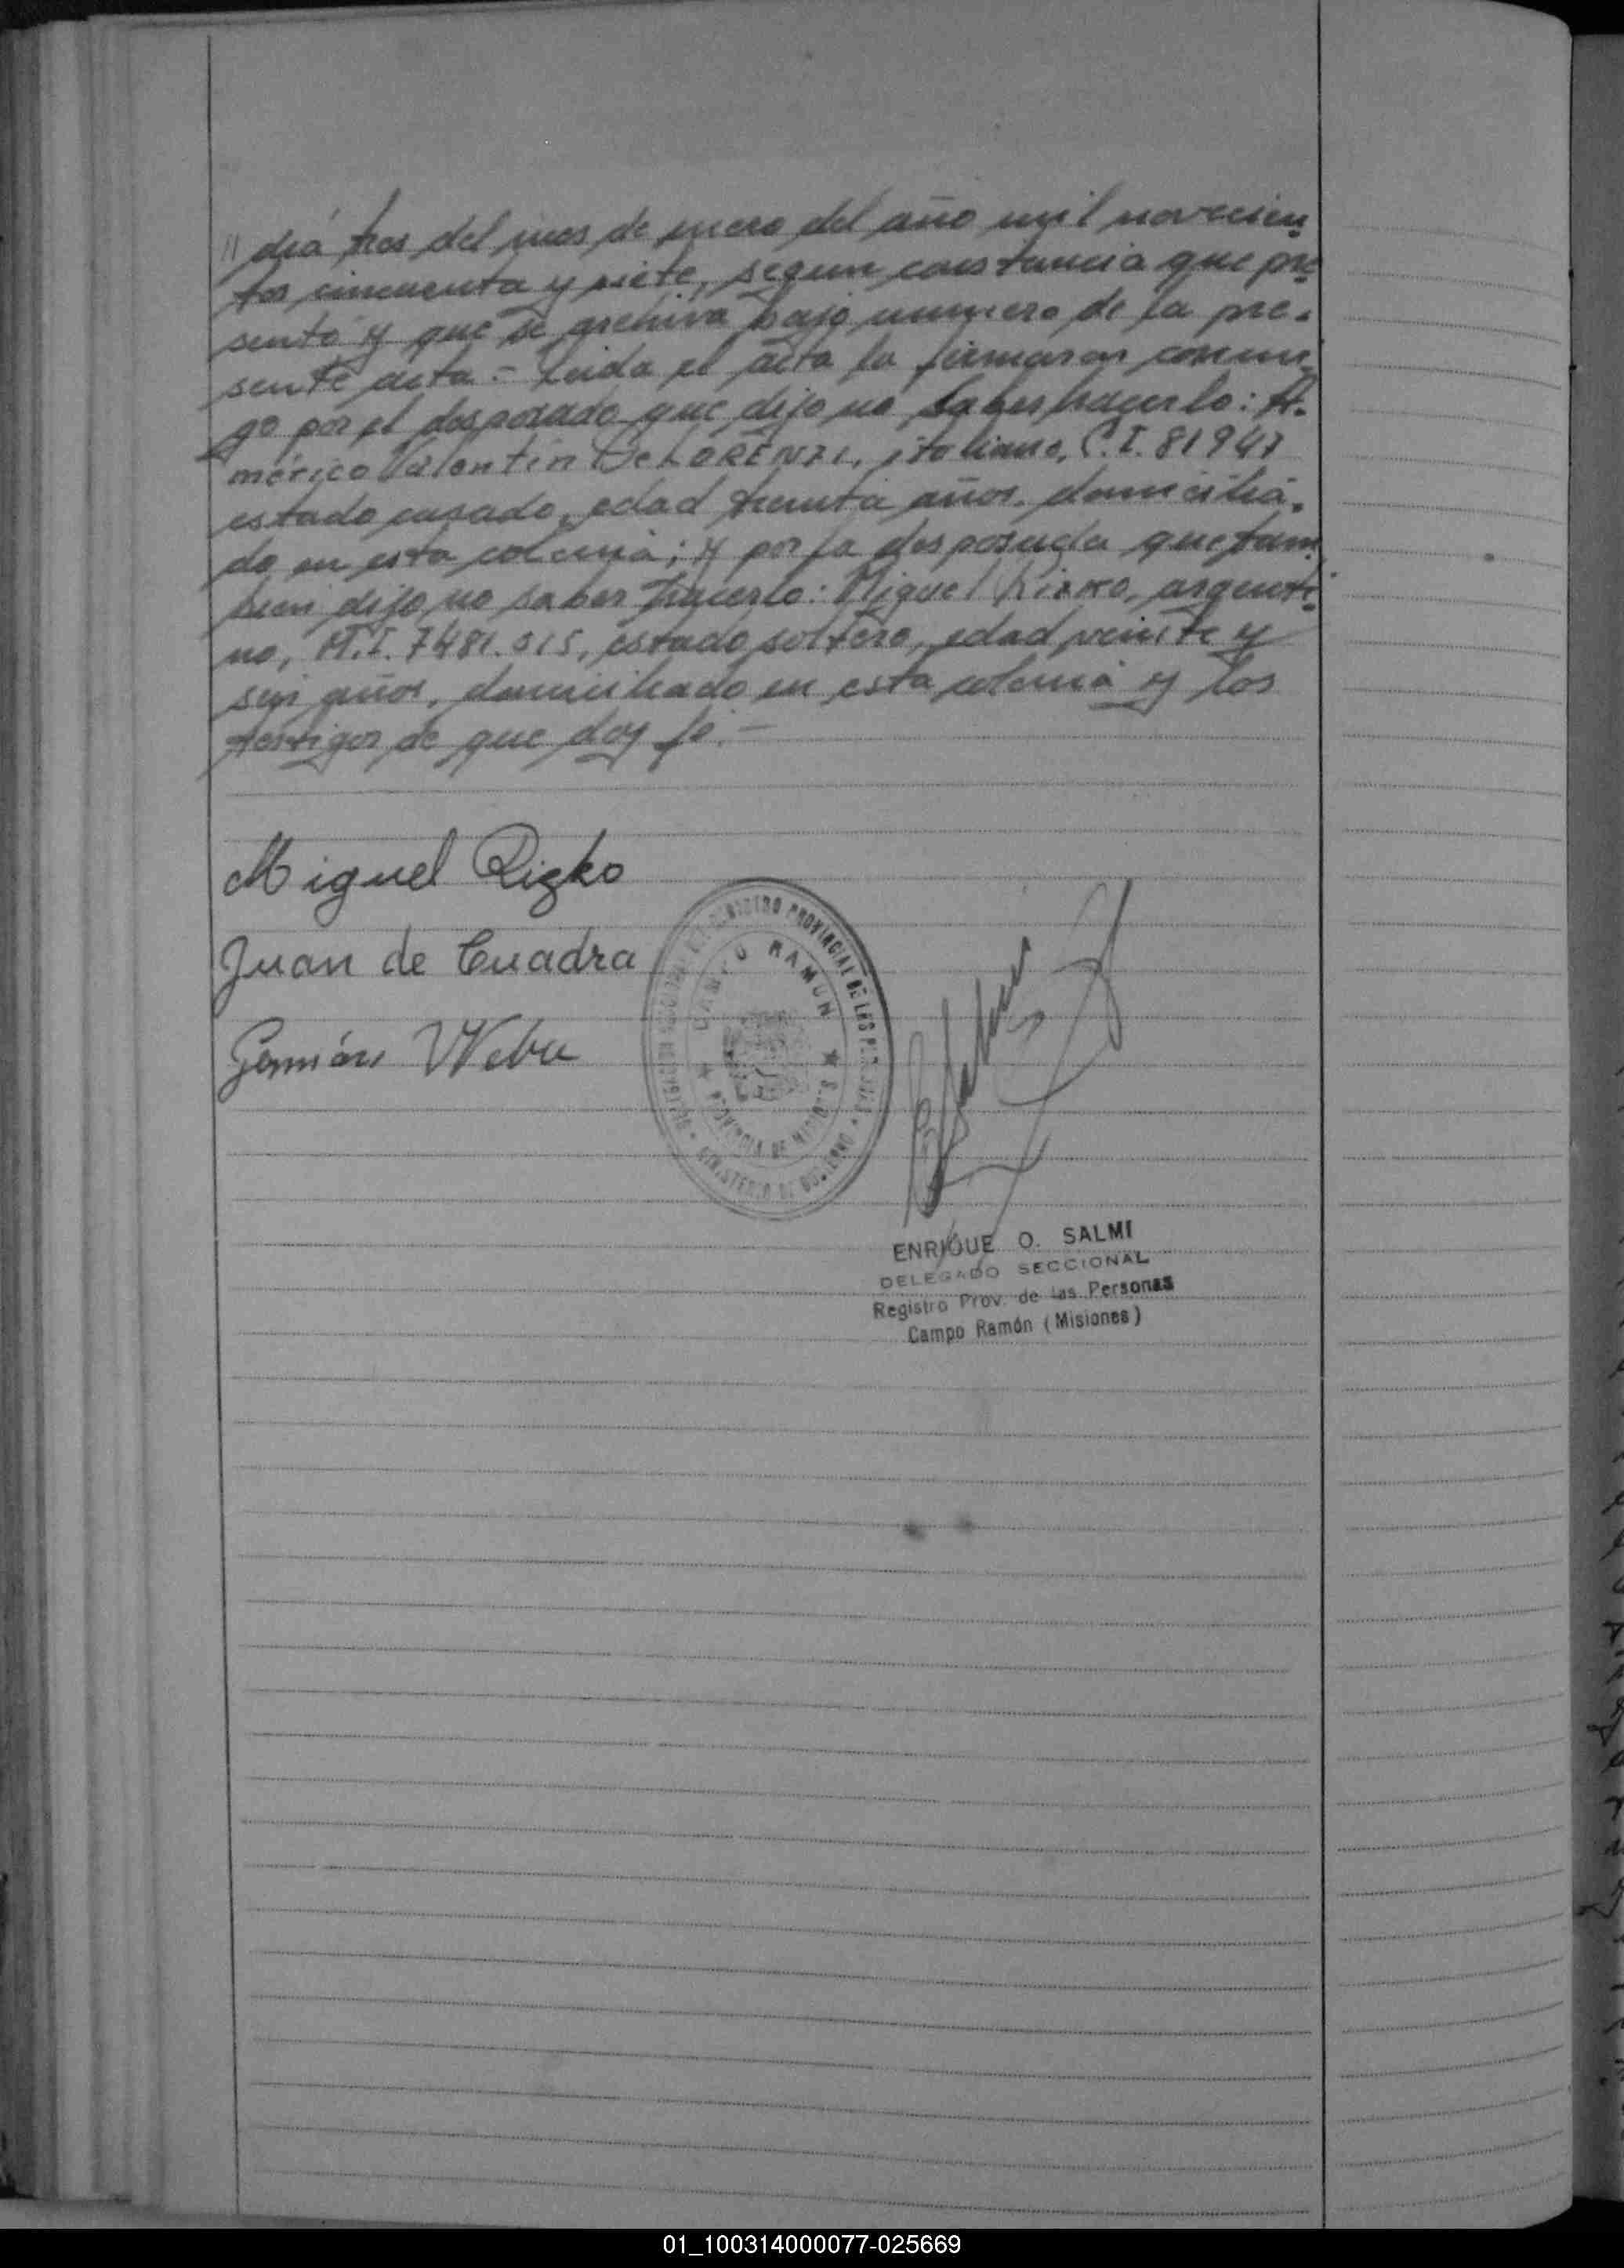 // día tres del mes de enero del año mil novecien
tos cincuenta y siete, segun constancia que pre
sentó y que se archiva bajo numero de la pre-
sente acta.- Leida el acta la firmaron conmi-
go por el desposado que dijo no saber hacerlo: A-
mérico Valentín De LORENZI, italiano, C.I. 81947
estado casado, edad treinta años, domicilia-
do en esta colonia; y por la desposada que tam
bien dijo no saber hacerlo: Miguel Rizko, argenti-
no, M.I. 7481.015, estado soltero, edad veinte y
seis años, domiciliado en esta colonia y los
testigos de que doy fé.-
Miguel Rizko
Juan de Cuadra
Germán Weber
REGISTRO PROVINCIAL DE LAS PERSONAS
CAMPO RAMON
PROVINCIA DE MISIONES
MINISTERIO DE GOBIERNO
ENRIQUE O. SALMI
DELEGADO SECCIONAL
Registro Prov. de las Personas
Campo Ramón (Misiones)
01_100314000077-025669